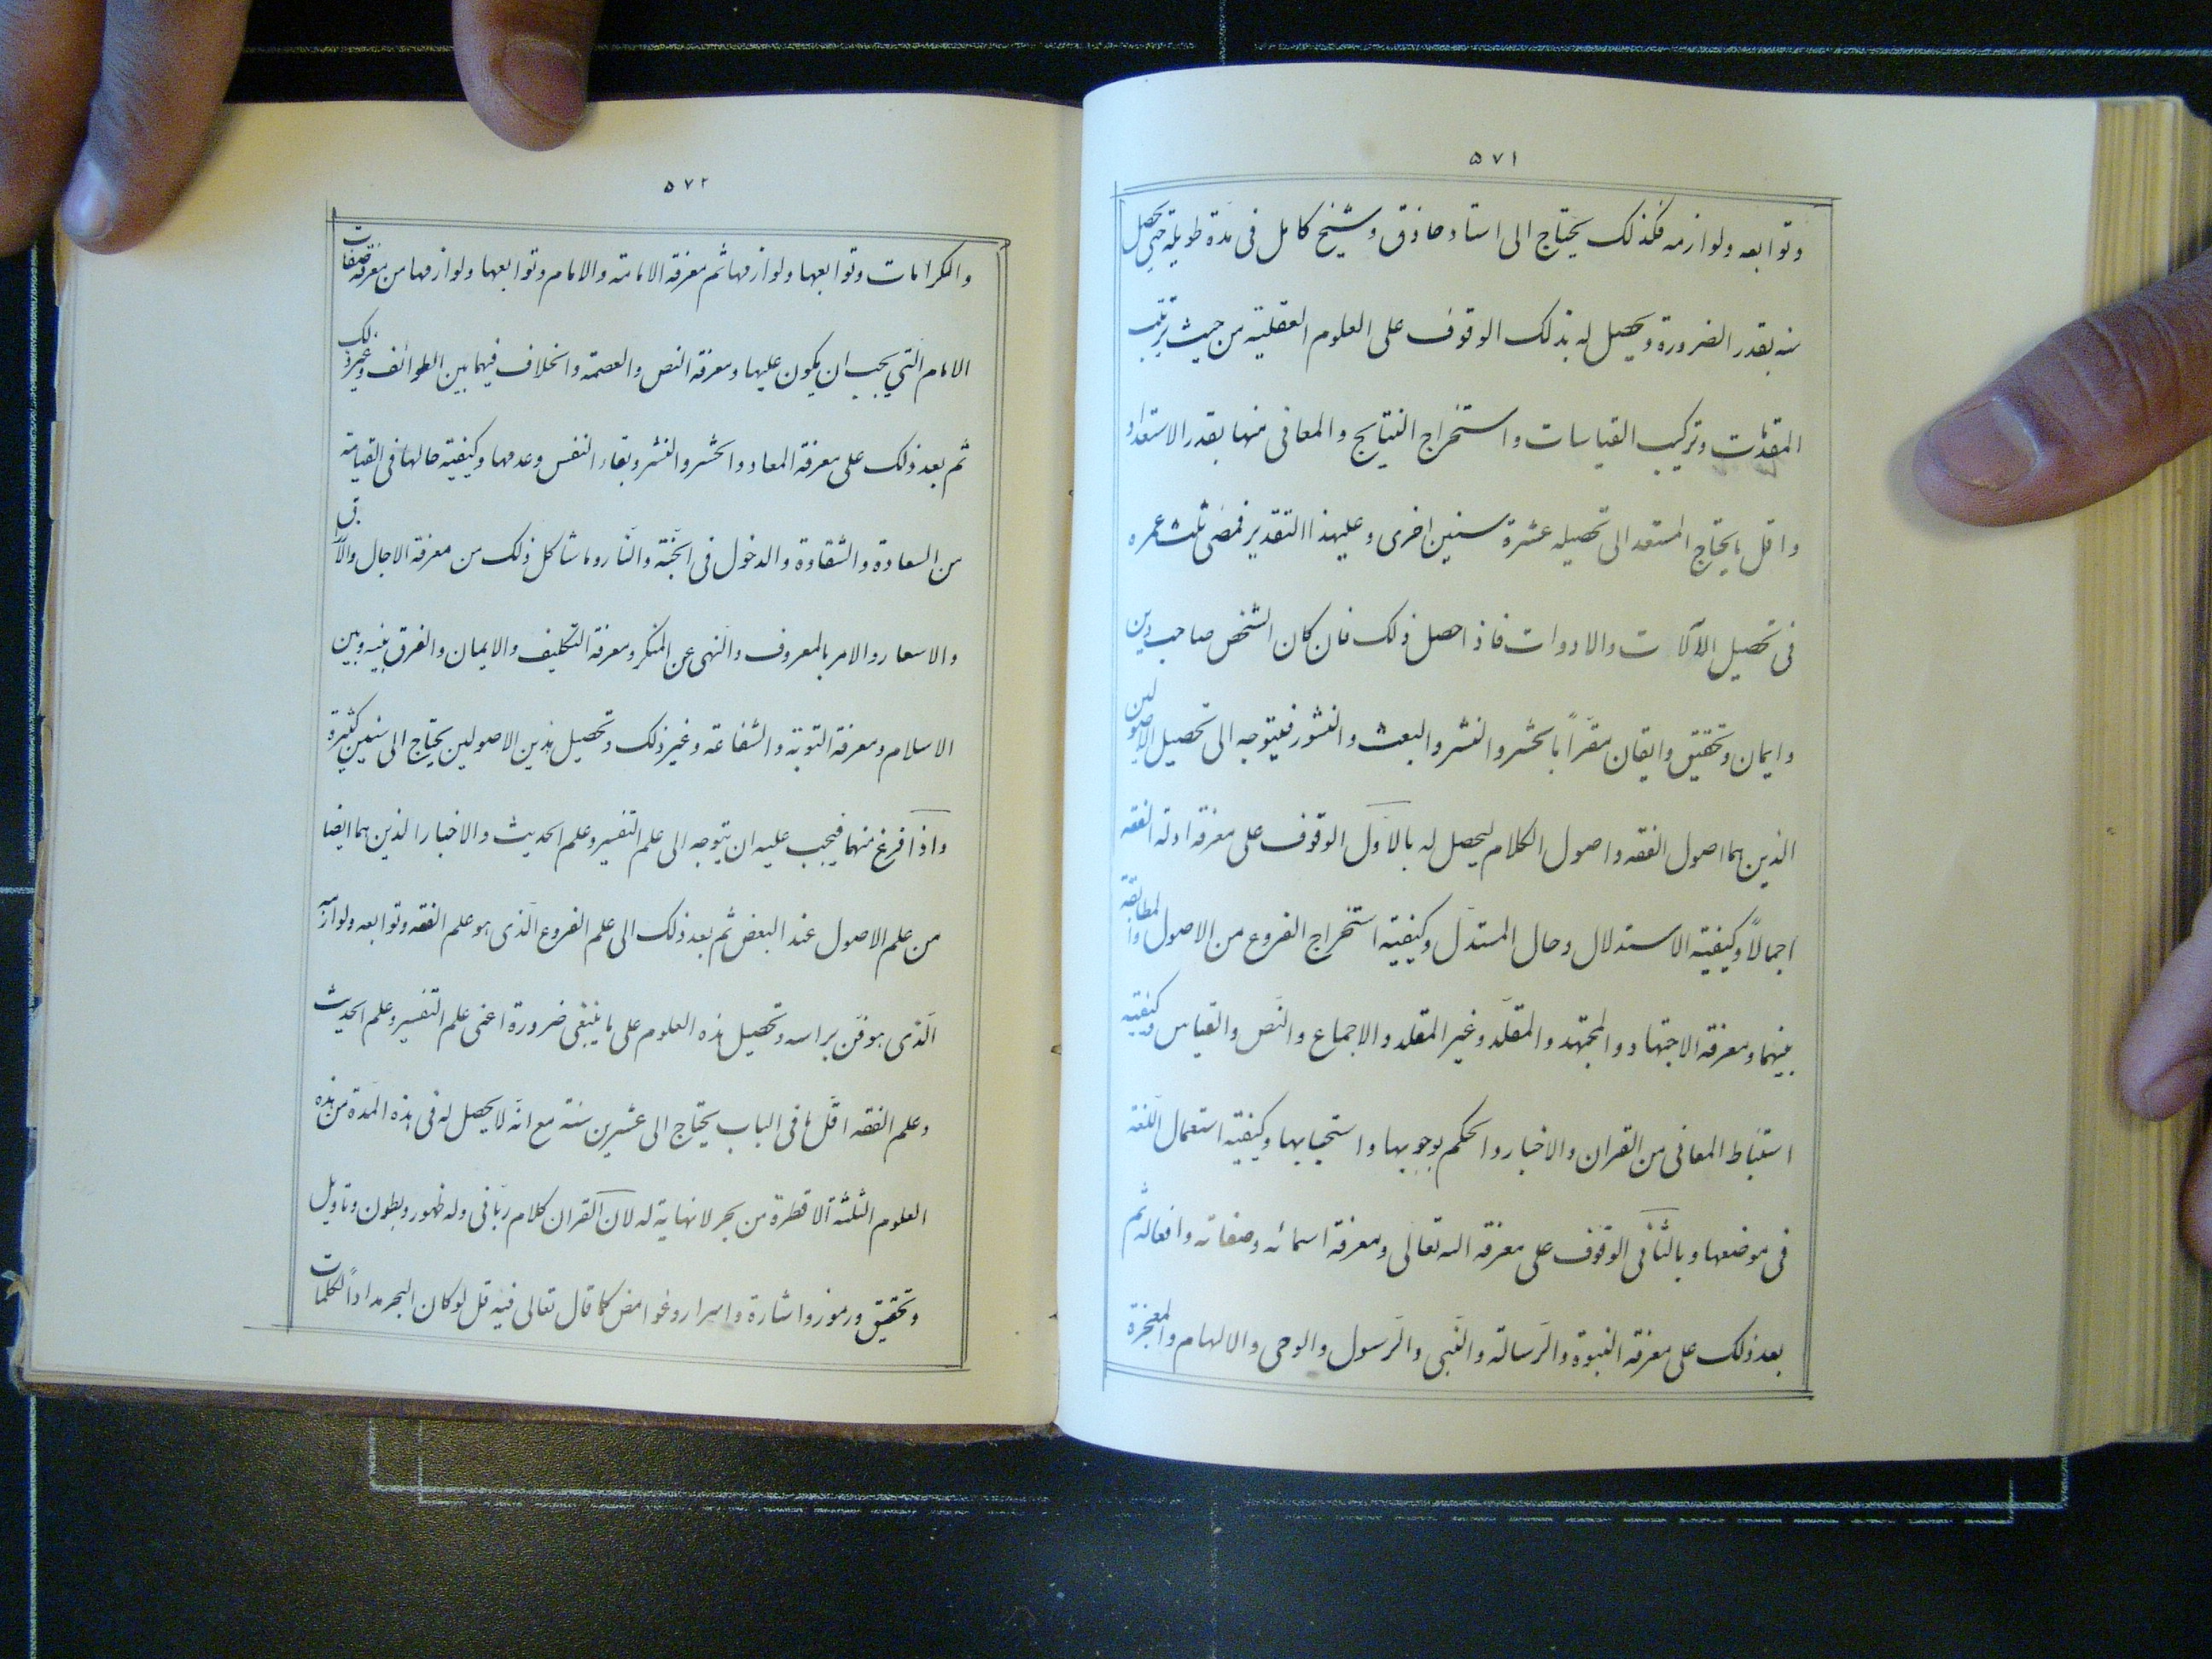 ۵۷۱
وتوابعه ولوازمه فكذلك يحتاج الى استاد حاذق وشيخ كامل فى مدّة طويلة حتى يحصل
منه بقدر الضرورة ويحصل له بذلك الوقوف على العلوم العقلية من حيث ترتيب
المقدّمات وتركيب القياسات واستخراج النتايج والمعانى منها بقدر الاستعداد
واقل ما يحتاج المستعد الى تحصيله عشرة سنين اخرى وعليهذا التقدير فمضى ثلث عمره
فى تحصيل الآلات والادوات فاذا حصل ذلك فان كان الشخص صاحب دين
وايمان وتحقيق وايقان مقرّاً بالحشر والنشر والبعث والنشور فيتوجه الى تحصيل الاصولين
الذين هما اصول الفقه واصول الكلام ليحصل له بالاوّل الوقوف على معرفة ادلة الفقه
اجمالاً وكيفية الاستدلال وحال المستدلّ وكيفية استخراج الفروع من الاصول والمطابقة
بينهما ومعرفة الاجتهاد والمجتهد والمقلّد وغير المقلد والاجماع والنصّ والقياس وكيفية
استنباط المعانى من القران والاخبار والحكم بوجوبها واستحبابها وكيفية استعمال اللّغة
فى موضعها وبالثانى الوقوف على معرفة الله تعالى ومعرفة اسمائه وصفاته وافعاله ثم
بعد ذلك على معرفة النبوة والرّسالة والنّبى والرّسول والوحى والالهام والمعجزة
۵۷۲
والكرامات وتوابعها ولوازمها ثم معرفة الامامة والامام وتوابعها ولوازمها من معرفة صفات
الامام التي يجب ان يكون عليها ومعرفة النص والعصمة والخلاف فيهما بين الطوائف وغير ذلك
ثم بعد ذلك على معرفة المعاد والحشر والنشر وبقاء النفس وعدمها وكيفية حالها فى القيامة
من السعادة والشقاوة والدخول فى الجنّة والنّار وما شاكل ذلك من معرفة الاجال والارزاق
والاسعار والامر بالمعروف والنهى عن المنكر ومعرفة التكليف والايمان والفرق بينه وبين
الاسلام ومعرفة التوبة والشفاعة وغير ذلك وتحصيل هذين الاصولين يحتاج الى سنين كثيرة
واذا فرغ منهما فيجب عليه ان يتوجه الى علم التفسير وعلم الحديث والاخبار الذين هما ايضا
من علم الاصول عند البعض ثم بعد ذلك الى علم الفروع الّذى هو علم الفقه وتوابعه ولوازمه
الّذى هو فنّ براسه وتحصيل هذه العلوم على ما ينبغى ضرورة اعنى علم التفسير وعلم الحديث
وعلم الفقه اقلّ ما فى الباب يحتاج الى عشرين سنة مع انّه لا يحصل له فى هذه المدة من هذه
العلوم الثلثة الا قطرة من بحر لا نهاية له لانّ القران كلام ربّانى وله ظهور وبطون وتاويل
وتحقيق ورموز واشارة واسرار وغوامض كما قال تعالى فيه قل لو كان البحر مداداً لكلمات